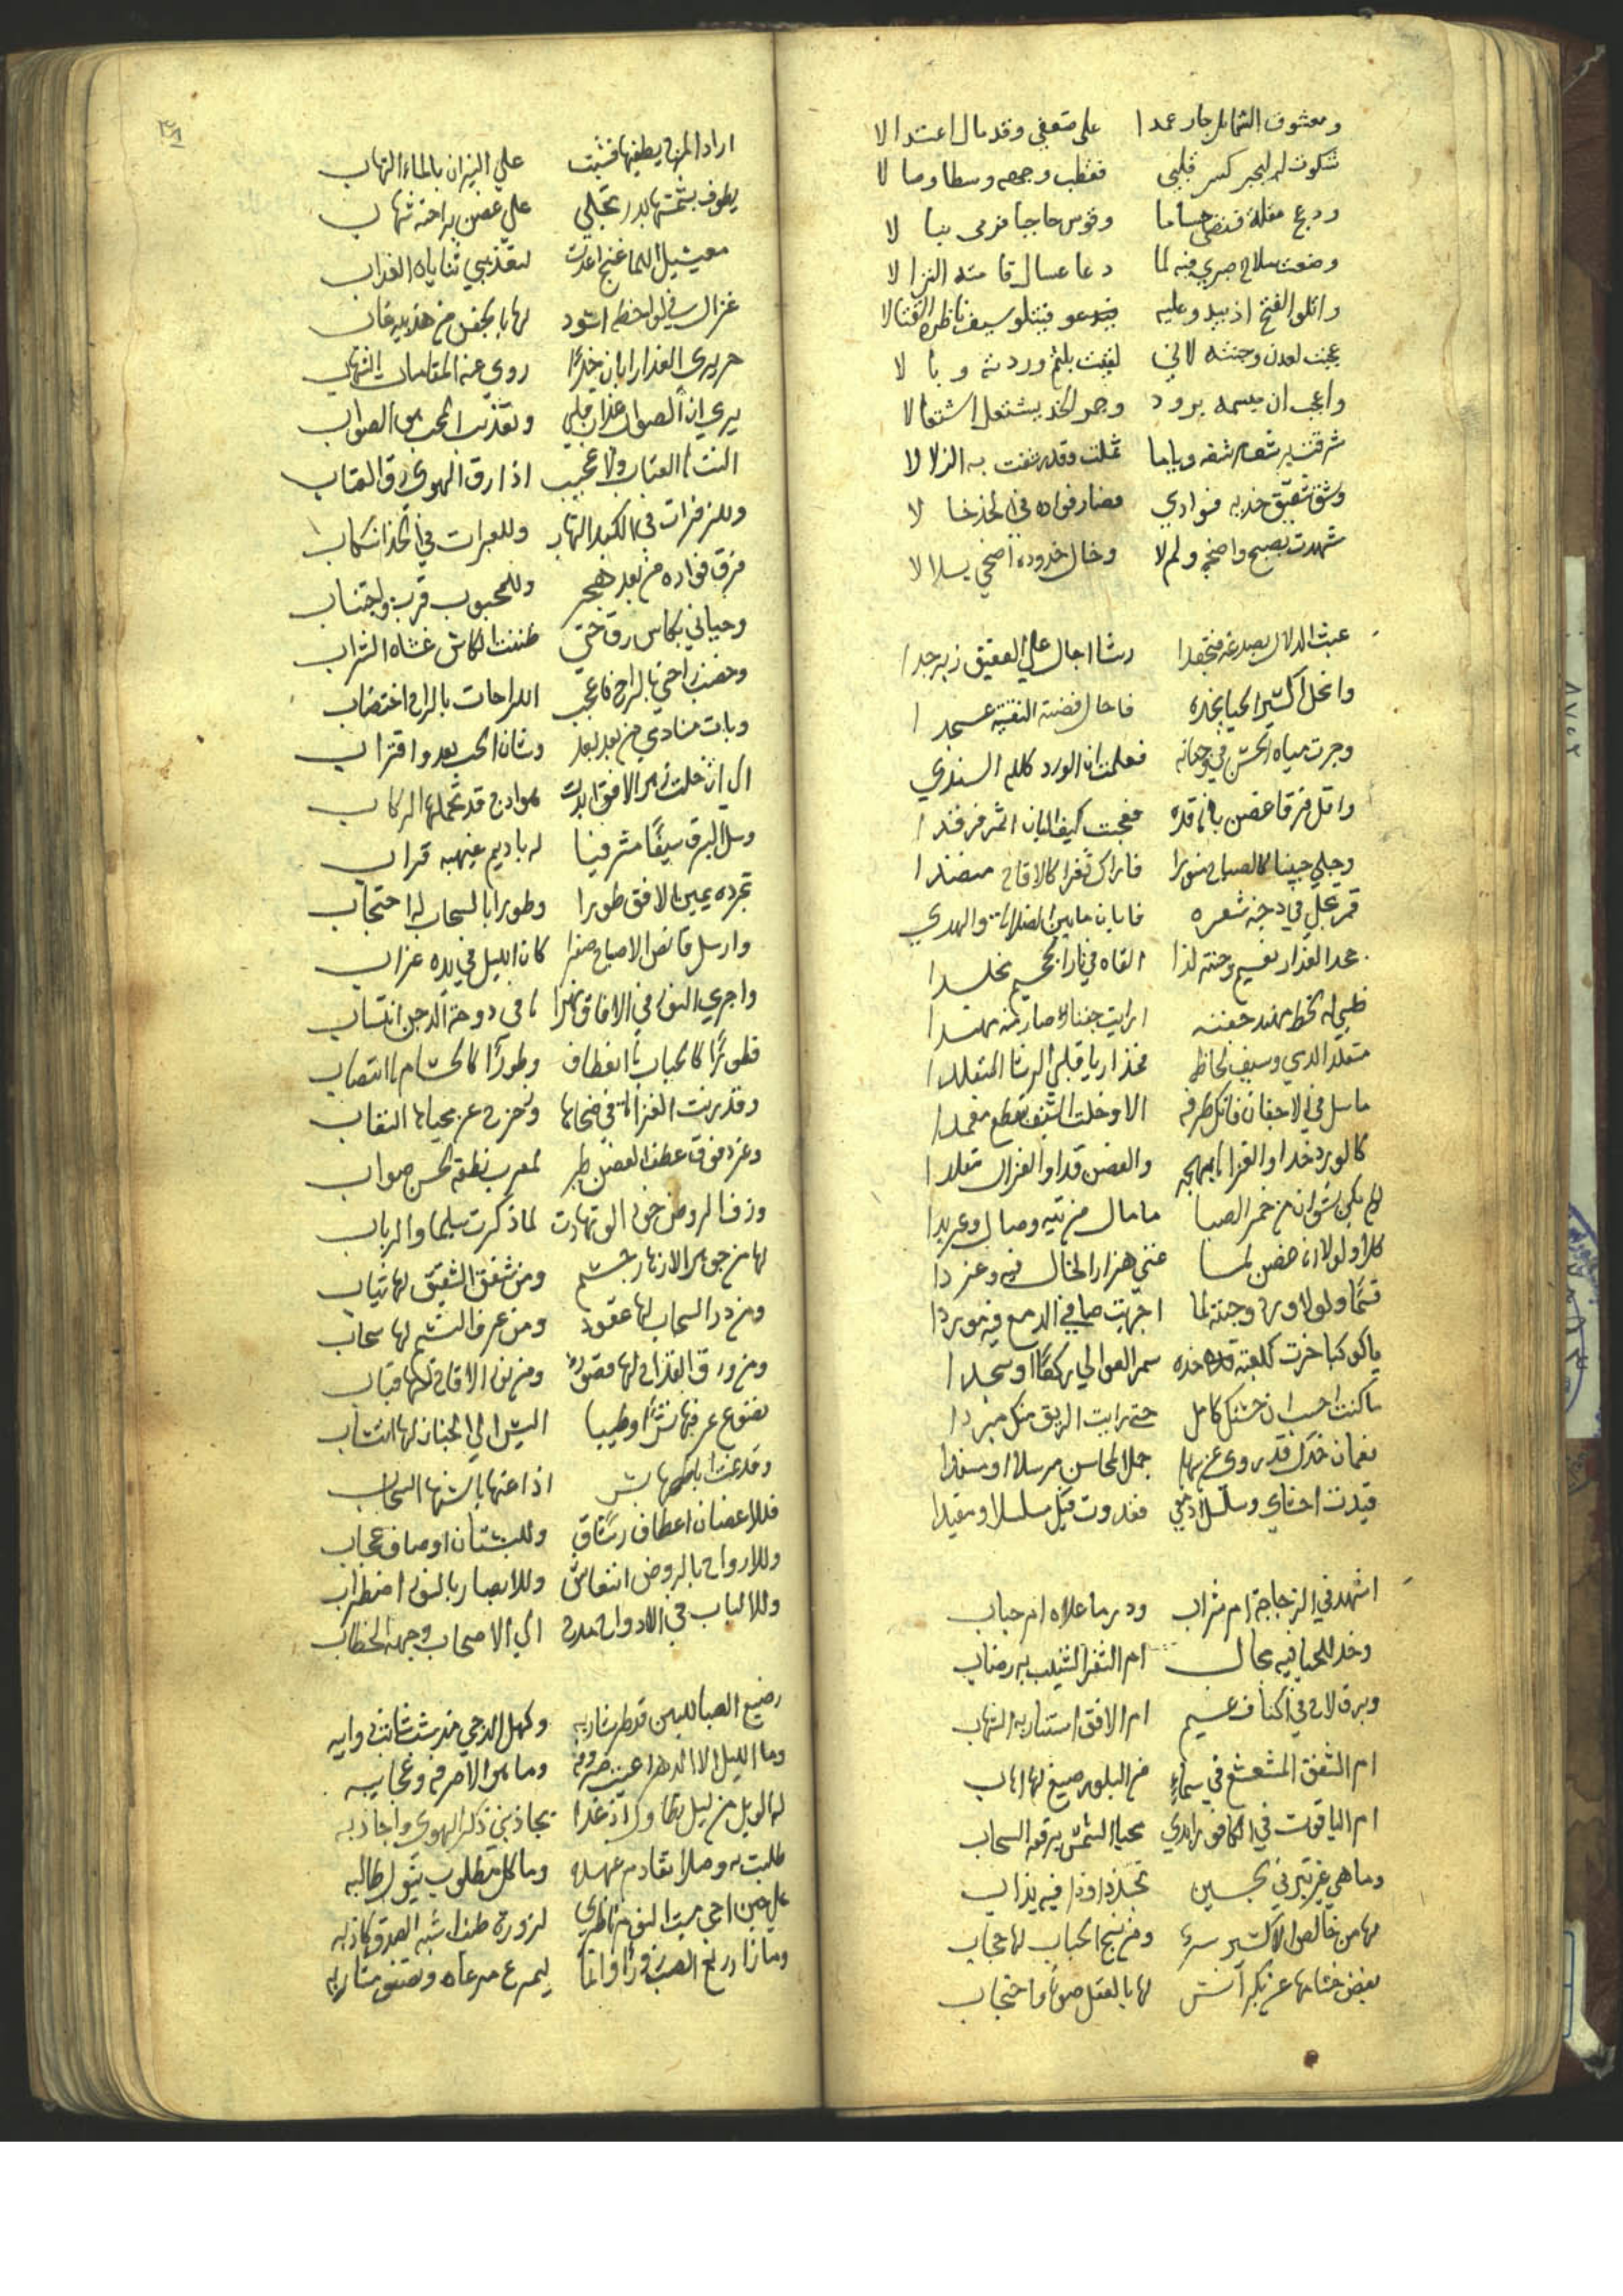 ومعشوق الشمايل جار عمدا على ضعفي وقد مال اعتدالا
شكوت له ليجبر كسر قلبي فقطب وجهه وسطا وصالا
ودعج مقلة فنضى حساما وقوس حاجبا فرمى نبالا
وضعت سلاح صبري فيه لما دعا عسال قامته النزالا
واتلو الفتح اذ يبدو عليه فيتلو سيف ناظره القتالا
عجبت لعدن وجنته لاني لقيت بلثم وردته وبالا
واعجب ان مبسمه برود وجمر الخد يشتعل اشتعالا
ثملت وقد رشفت به الزلالا
وشق شقيق خديه فوادي فصار فواده في الخد خالا
شهدت بصبح واضحه ولم لا وخال خدوده اضحى بلالا
عبث الدلال بصدغه فتجعدا رشا اجال على العقيق زبرجدا
وانحل اكسير الحيا بخده فاحال فضته النقية عسجدا
وجرت مياه الحسن في وجناته فعلمت ان الورد كلله الندى
واقل فرقا غصن بانة قده فعجبت كيف البان اثمر فرقدا
وجلى جبينا كالصباح منورا فاراك ثغرا كالاقاح منضدا
قمر تجلى في دجنة شعره فابان ما بين الضلالة والهدي
جحد العذار نعيم وجنته لذا القاه في نار الجحيم مخلدا
ظبي له لحظ مهند جفنه ارايت جفنا صار منه مهندا
متقلد الدري وسيف لحاظه فحذار يا قلبي الرشا المتقلدا
ما سل في الاجفان فاتك طرفه الا وخلت السيف يقطع مغمدا
كالورد خدا او الغزالة بهجة والغصن قدا او الغزال مقلدا
لو لم يكن نشوان من خمر الصبا ما مال من تيه وصال وعربدا
كلا ولولا انه غصن لما غنى هزار الخال فيه وغردا
قسما ولولا ورد وجنته لما اجريت صافي الدمع فيه موردا
يا كوكبا خرت لكعبة خده سمر العوالي ركعا او سجدا
ما كنت احسب ان حسنك كامل حتى رايت الريق منك مبردا
نعمان خدك قد روى عن سهل جمل المحاسن مرسلا او مسندا
قيدت احشاي وسلسل ادمعي فغدوت فيك مسلسلا ومقيدا
اشهد في الزجاجة ام شراب ودر ما علاه ام حباب
وخد للحيا فيه مجال ام الثغر الشنيب به رضاب
وبرق لاح في اكناف غيم ام الافق استنار به الشهاب
ام الشفق المشعشع في سماء من البلور صيغ لها اهاب
ام الياقوت في الكافور ابدي محيا الشمس برقعه السحاب
وما هي غير تبر في لجين تجلد او ندا فيه يذاب
لها من خالص الاكسير سر ومن نسج الحباب لها حجاب
يفض ختامها عن بكر انس لها بالعقل صون واحتجاب
اراد المزج يطفيها فشبت على النيران بالماء التهاب
يطوف بشمسها بدر تجلى على غصن براحته شهاب
معيشيل اللما غنج اعدت لتعذيبي ثناياه العذاب
غزال في لواحظه اسود لها بالجفن من هدبيه غاب
حريري العذار ابان خدا روى عنه المقامات الشهاب
يرى ان الصواب عذاب قلبي وتعذيب المحب هو الصواب
الفت العتاب ولا عجيب اذا رق الهوى رق العتاب
وللزفرات في الكبد التهاب وللعبرات في الخد انسكاب
فرق فواده من بعد هجر وللمحبوب قرب واجتناب
وحياني بكاس رق حتى ظننت الكاس غشاه الشراب
وخضب راحتي بالراح فاعجب اللراحات بالراح اختضاب
وبات منادمي من بعد بعد وشان الحب بعد واقتراب
الى ان خلت زهر الافق ابدت هوادج قد تحملها الركاب
وسل البرق سيفا مشرفيا له باديم غيهبه قراب
تجرده يمين الافق طورا وطورا بالسحاب له احتجاب
وارسل قانص الاصباح صقرا كان الليل في يده غراب
واجرى النور في الافاق نهرا له في دوحة الدجن انسياب
فطورا كالحباب له انعطاف وطورا كالحسام له انتصاب
وقد برزت الغزالة في ضحاها وزحزح عن محياها النقاب
وغرد فوق عطف الغصن طير لمعرب نطقه لحن صواب
وزف الروض خود الو تهادت لما ذكرت سليما والرباب
لها من جوهر الازهار جسم ومن شفق الشقيق لها ثياب
ومن در السحاب لها عقود ومن عرف النسيم لها سحاب
ومن ورق الغدير لها قصور ومن نور الاقاح لها قباب
تضوع عرفها نشرا وطيبا اليس الى الجنان لها انتساب
فللاغصان اعطاف رشاق وللبستان اوصاف عجاب
وللارواح بالروض انتعاش وللابصار بالنور اضطراب
وللالباب في الادواح مدح الى الاصحاب وجهه الخطاب
رضيع الصبا للبين قد طر شاربه وكهل الدجى مذ شب شابت ذوايبه
وما الليل الا الدهر اعيت صروفه وما هو الا صرفه وعجايبه
له الويل من ليل تطاول اذ غدا يجاذبني ذكر الهوى واجاذبه
طلبت به وصلا تقادم عهده وما كل مطلوب ينول طالبه
على حين احمى ميت النوم ناظري لزورة طيف اشبه الصدق كاذبه